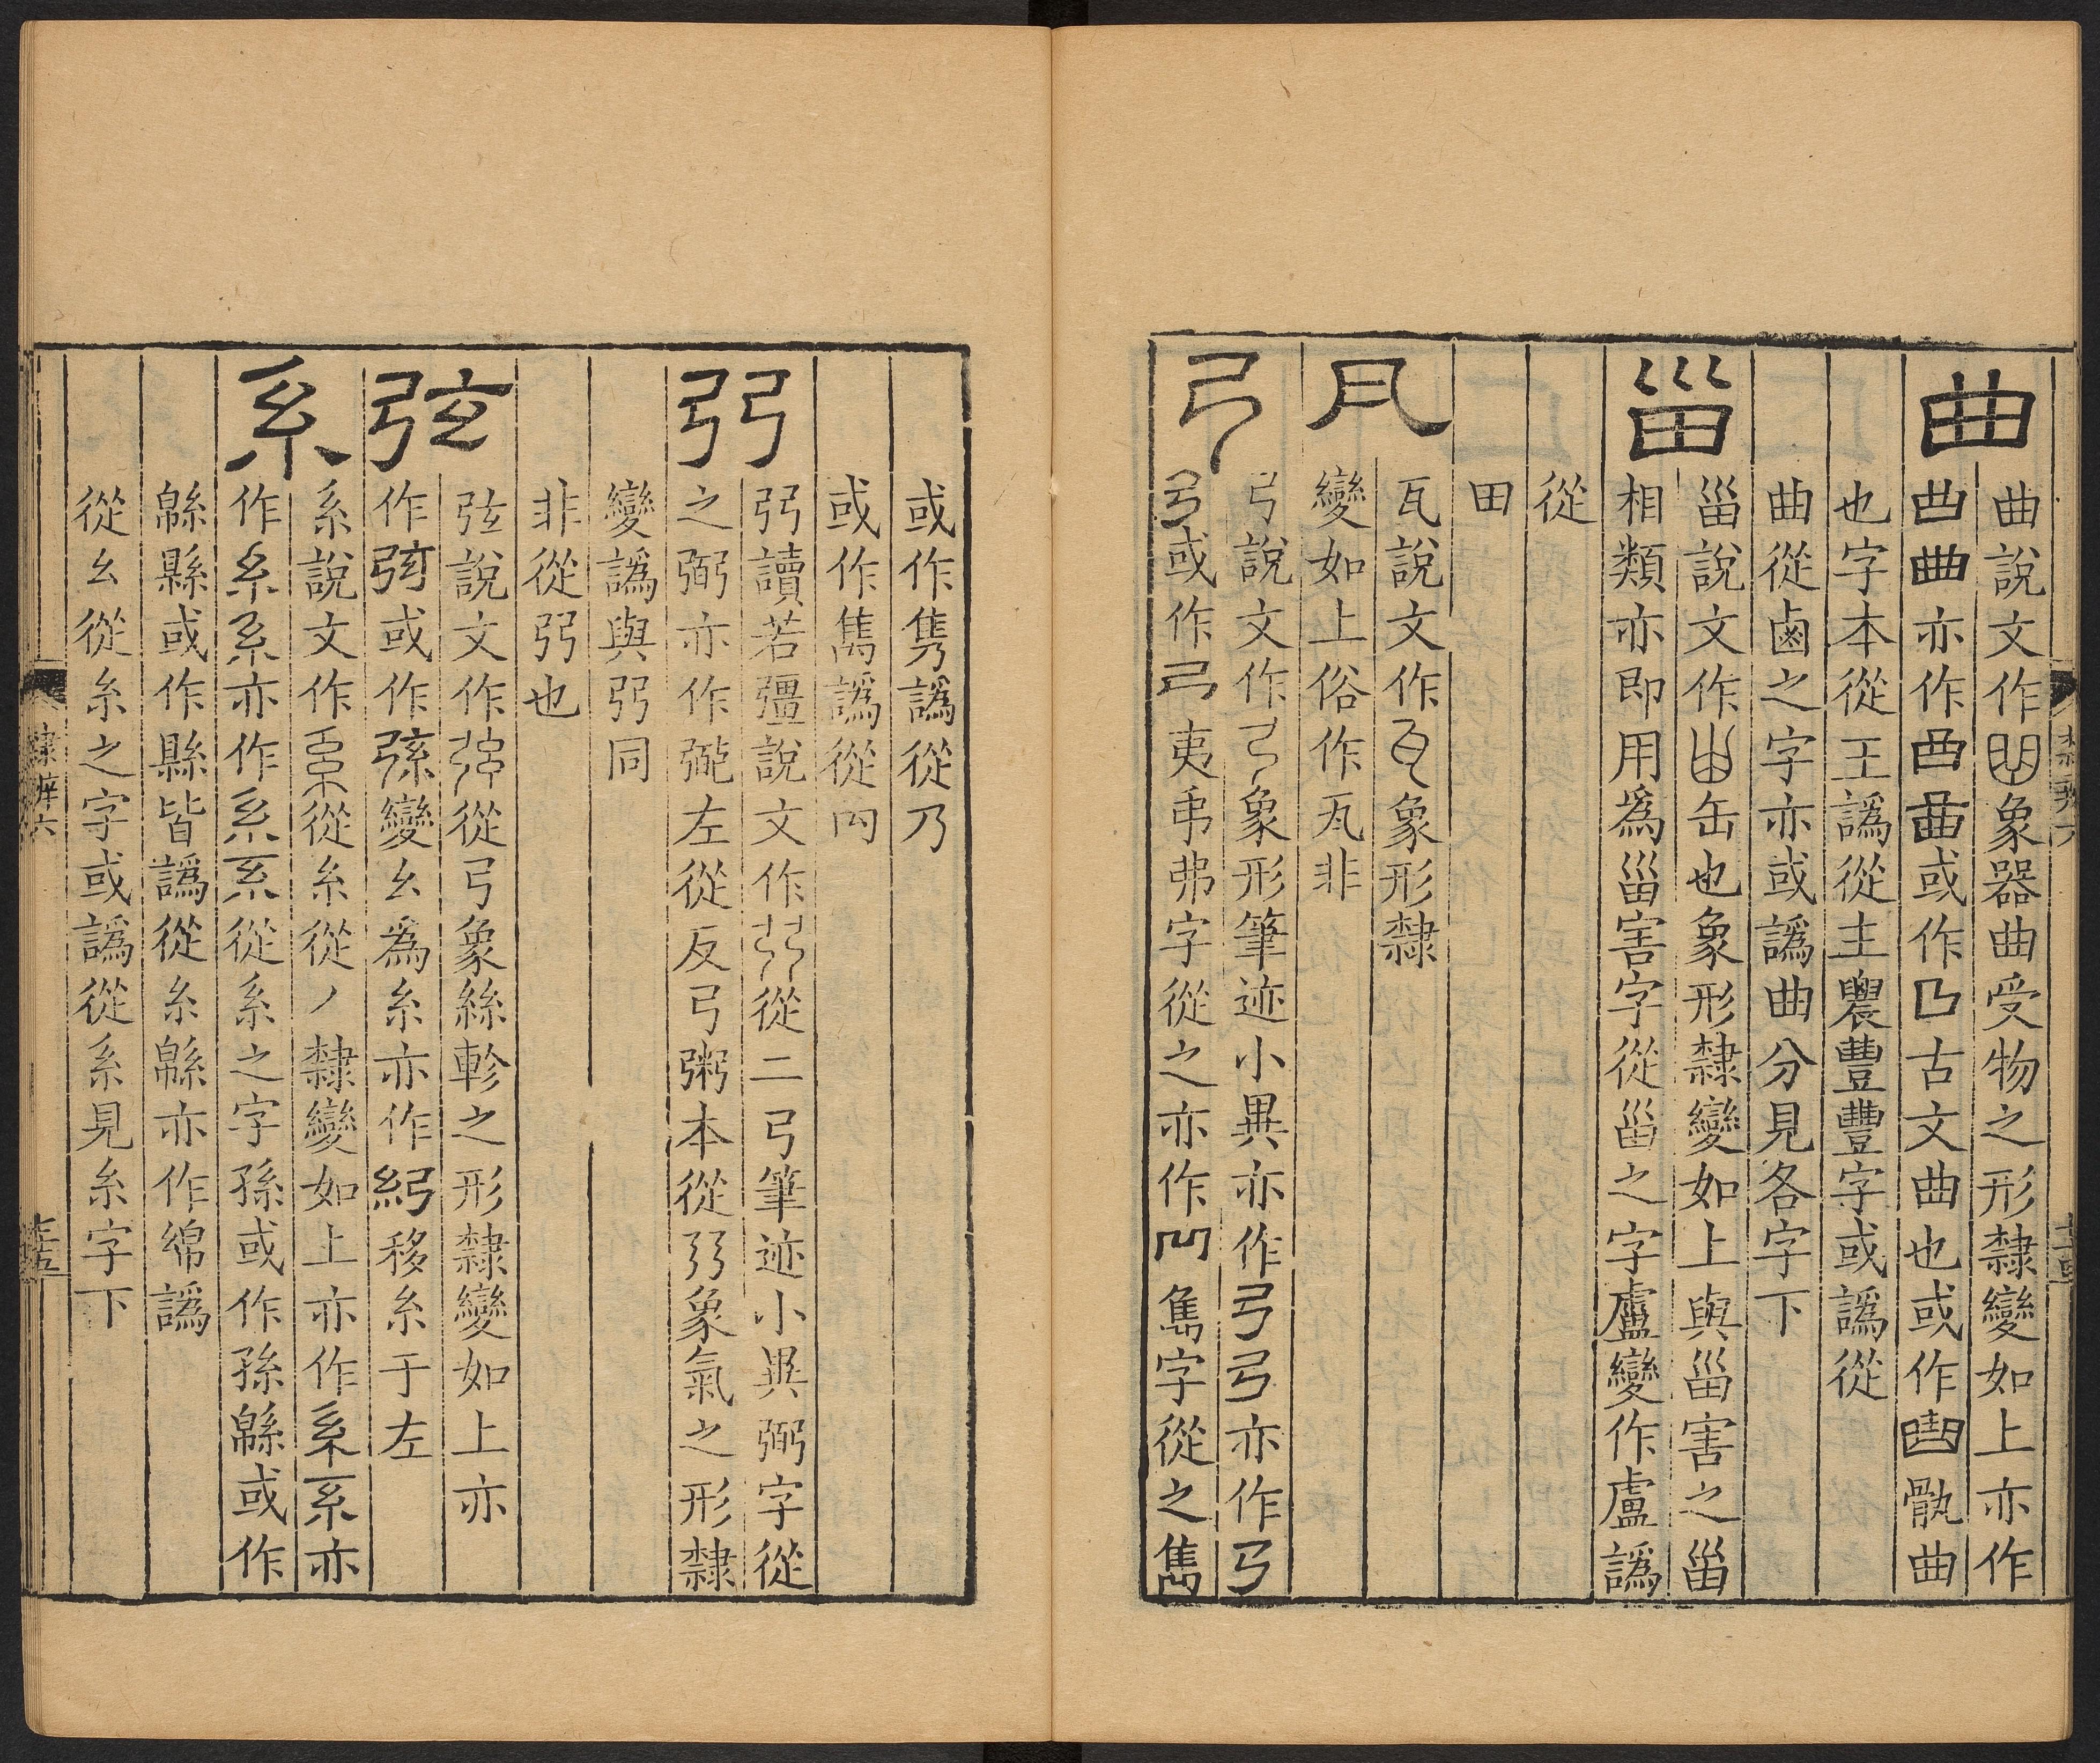 曲
曲說文作象器曲受物之形隸變如上亦作
亦作或作古文曲也或作骫曲
也字本從王譌從主農豐豐字或譌從
曲從鹵之字亦或譌曲分見各字下
甾
甾說文作缶也象形隸變如上與甾害之甾
相類亦即用爲甾害字從甾之字盧變作盧譌
從
田
瓦
瓦說文作象形隸
變如上俗作瓦非
弓
弓說文作象形筆迹小異亦作弓弓亦作
或作夷弔弗字從之亦作凹雋字從之雋
或作隽譌從乃
或作雋譌從冏
弜
弜讀若彊說文作從二弓筆迹小異弼字從
之弼亦作左從反弓粥本從象氣之形隸
變譌與弜同
非從弜也
弦
弦說文作從弓象絲軫之形隸變如上亦
作或作變幺爲糸亦作移糸于左
系
系說文作從糸從丿隸變如上亦作系系亦
作系系亦作系系從系之字孫或作孫緜或作
緜縣或作縣皆譌從糸緜亦作綿譌
從幺從糸之字或譌從系見糸字下
隸辨 六
十五